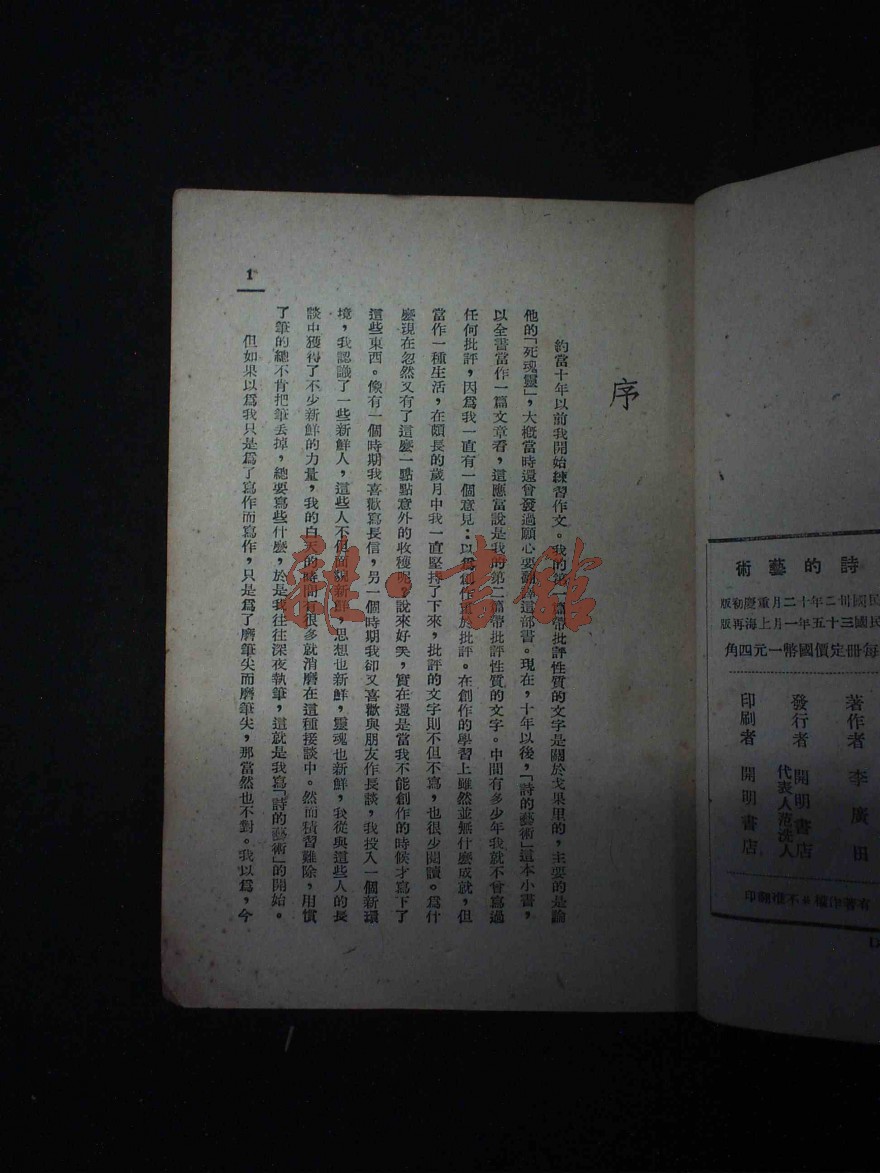 詩的藝術
民國卅二年十二月重慶初版
民國三十五年一月上海再版
每冊定價國幣一元四角
著作者 李廣田
發行者 開明書店
代表人范洗人
印刷者 開明書店
有著作權不准翻印
序
約當十年以前我開始練習作文。我的第一篇帶批評性質的文字是關於戈果里的,主要的是論
他的「死魂靈」,大概當時還曾發過願心要翻譯這部書。現在,十年以後,「詩的藝術」這本小書,
以全書當作一篇文章看,這應當說是我的第二篇帶批評性質的文字。中間有多少年我就不曾寫過
任何批評,因爲我一直有一個意見:以爲創作重於批評。在創作的學習上雖然並無什麼成就,但
當作一種生活,在頗長的歲月中我一直堅持了下來,批評的文字則不但不寫,也很少閱讀。爲什
麼現在忽然又有了這麼一點點意外的收穫呢,說來好笑,實在還是當我不能創作的時候才寫下了
這些東西。像有一個時期我喜歡寫長信,另一個時期我卻又喜歡與朋友作長談,我投入一個新環
境,我認識了一些新鮮人,這些人不但面貌新鮮,思想也新鮮,靈魂也新鮮,我從與這些人的長
談中獲得了不少新鮮的力量,我的白天的時間有很多就消磨在這種接談中。然而積習難除,用慣
了筆的總不肯把筆丟掉,總要寫些什麼,於是我往往深夜執筆,這就是我寫「詩的藝術」的開始。
但如果以爲我只是爲了寫作而寫作,只是爲了磨筆尖而磨筆尖,那當然也不對。我以爲,今
1
雜·書館